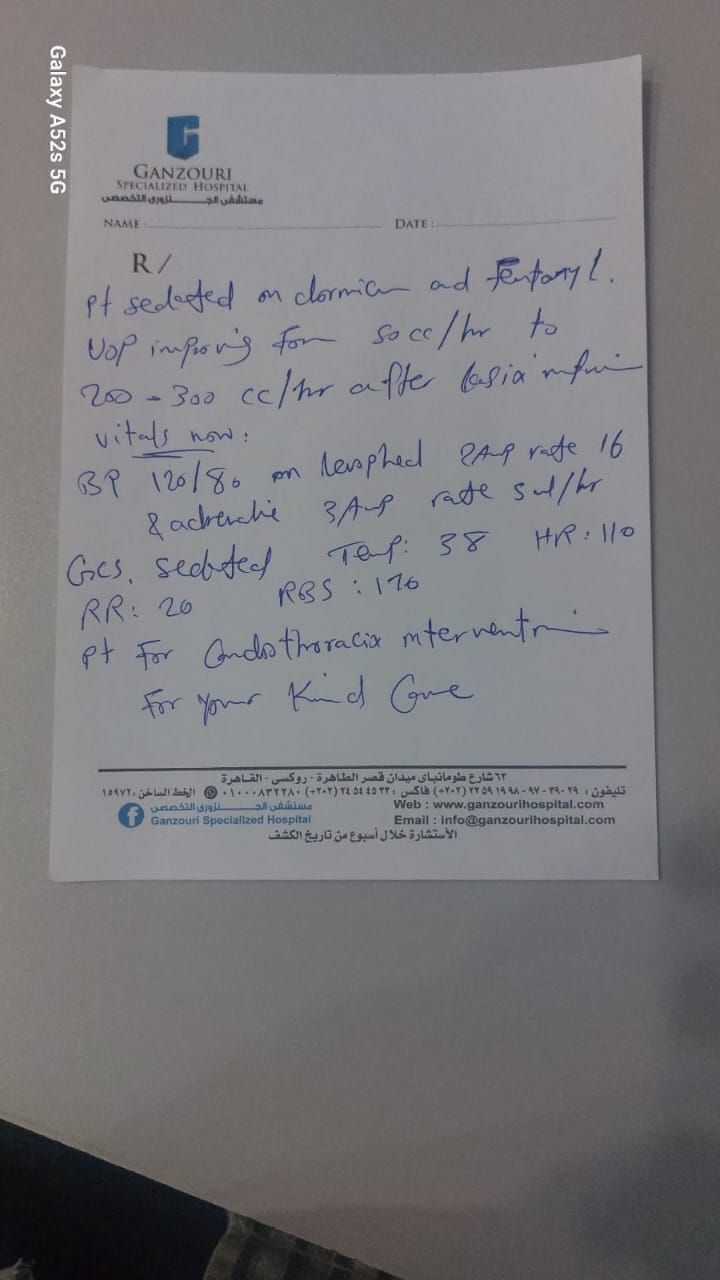 Galaxy A52s 5G
GANZOURI
SPECIALIZED HOSPITAL
مستشفى الجنزورى التخصصى
NAME :
DATE :
R/
Pt sedated on dormicum and Fentanyl.
UOP improving from 50 cc/hr to
200 - 300 cc/hr after lasix infusion
vitals now:
BP 120/80 on levophed 2Amp rate 16
& adrenaline 3Amp rate 5 ml/hr
GCS. sedated Temp: 38 HR: 110
RR: 20 RBS : 170
pt For Cardiothoracic intervention
For your Kind Care
٦٣ شارع طومانباى ميدان قصر الطاهرة - روكسى - القاهرة
تليفون : ٢٩-٣٩-٩٧-٩٨ ١٩ ٥٩ ٢٢ (٢٠٢+) فاكس : ٣٣ ٤٥ ٥٤ ٢٤ (٢٠٢+) ٠١٠٠٠٨٣٢٢٨٠ الخط الساخن : ١٥٩٧٢
مستشفى الجنزورى التخصصى
Ganzouri Specialized Hospital
Web : www.ganzourihospital.com
Email : info@ganzourihospital.com
الأستشارة خلال أسبوع من تاريخ الكشف